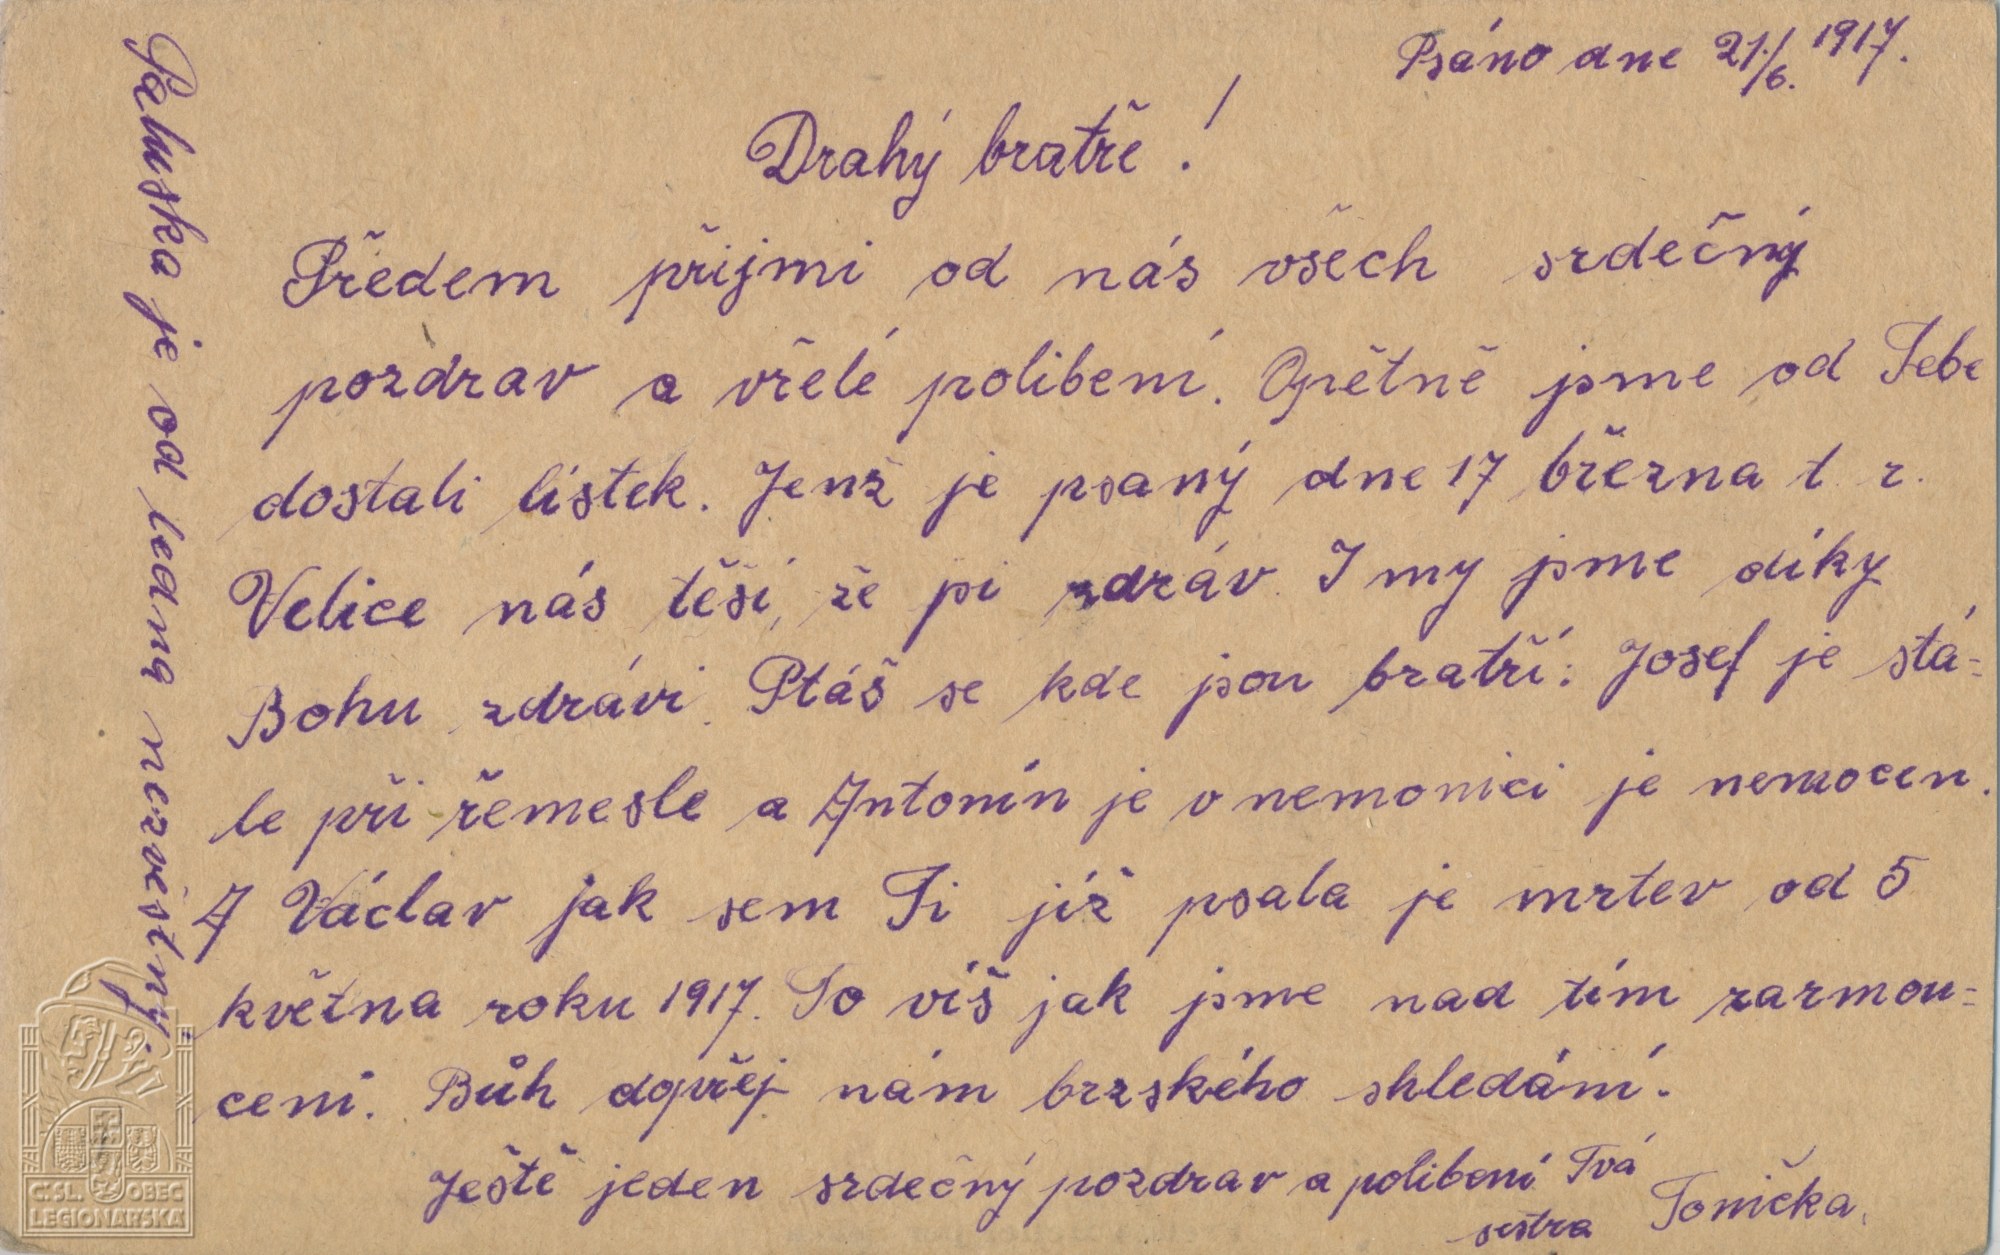 Psáno dne 21./6. 1917.
Drahý bratře!
Předem přijmi od nás všech srdečný
pozdrav a vřelé políbení. Opětně jsme od Tebe
dostali lístek. Jenž je psaný dne 17 března t. r.
Velice nás těší, že jsi zdráv. I my jsme díky
Bohu zdrávi. Ptáš se kde jsou bratří: Josef je stá=
le při řemesle a Antonín je v nemonici je nemocen.
A Václav jak sem Ti již psala je mrtev od 5
května roku 1917. To víš jak jsme nad tím zarmou=
ceni. Bůh dopřej nám brzského shledání.
Ještě jeden srdečný pozdrav a políbení Tvá
sestra Tonička.
Paluska je od ledna nezvěstný.
Č.SL. OBEC
LEGIONÁŘSKÁ